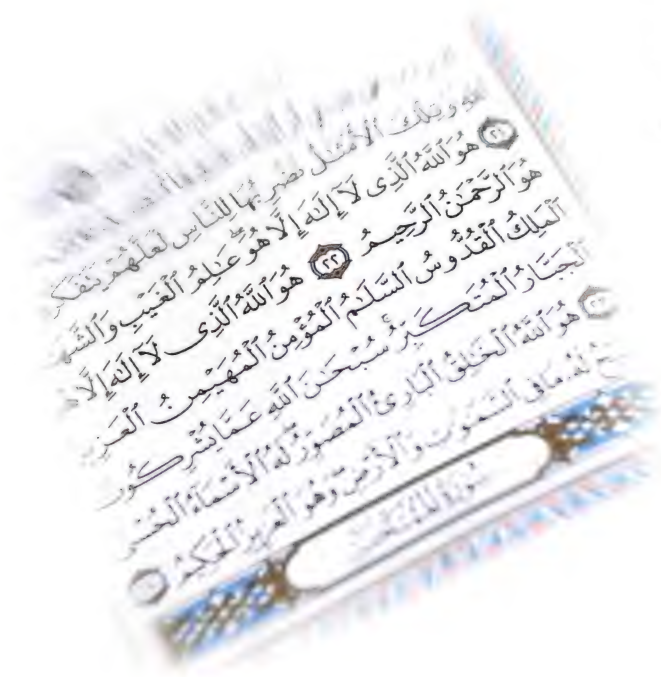 وَتِلْكَ ٱلْأَمْثَـٰلُ نَضْرِبُهَا لِلنَّاسِ لَعَلَّهُمْ يَتَفَكَّر
٢١ هُوَ ٱللَّهُ ٱلَّذِى لَآ إِلَـٰهَ إِلَّا هُوَ عَـٰلِمُ ٱلْغَيْبِ وَٱلشَّهَـ
هُوَ ٱلرَّحْمَـٰنُ ٱلرَّحِيمُ ٢٢ هُوَ ٱللَّهُ ٱلَّذِى لَآ إِلَـٰهَ إِلَّا هُ
ٱلْمَلِكُ ٱلْقُدُّوسُ ٱلسَّلَـٰمُ ٱلْمُؤْمِنُ ٱلْمُهَيْمِنُ ٱلْعَزِيز
ٱلْجَبَّارُ ٱلْمُتَكَبِّرُ سُبْحَـٰنَ ٱللَّهِ عَمَّا يُشْرِكُونَ
٢٣ هُوَ ٱللَّهُ ٱلْخَـٰلِقُ ٱلْبَارِئُ ٱلْمُصَوِّرُ لَهُ ٱلْأَسْمَآءُ ٱلْحُسْنَ
لَهُۥ مَا فِى ٱلسَّمَـٰوَٰتِ وَٱلْأَرْضِ وَهُوَ ٱلْعَزِيزُ ٱلْحَكِيمُ
سُورَةُ ٱلْمُمْتَحَنَةِ